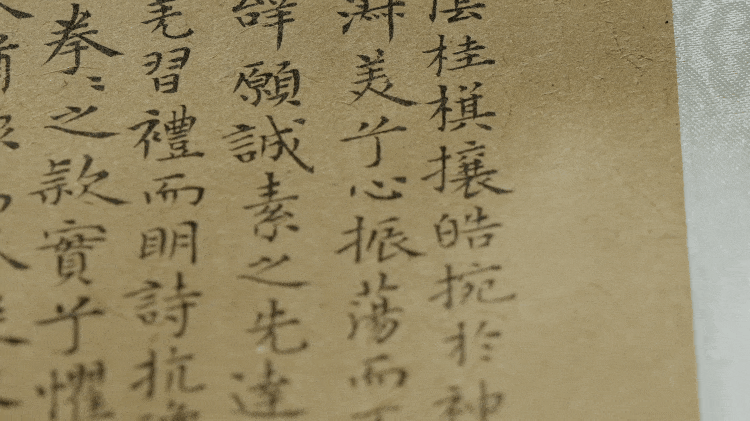 桂棋攘皓捥於神
淑美兮心振蕩而
辭願誠素之先達
羌習禮而眀詩抗
拳〻之款實兮懼